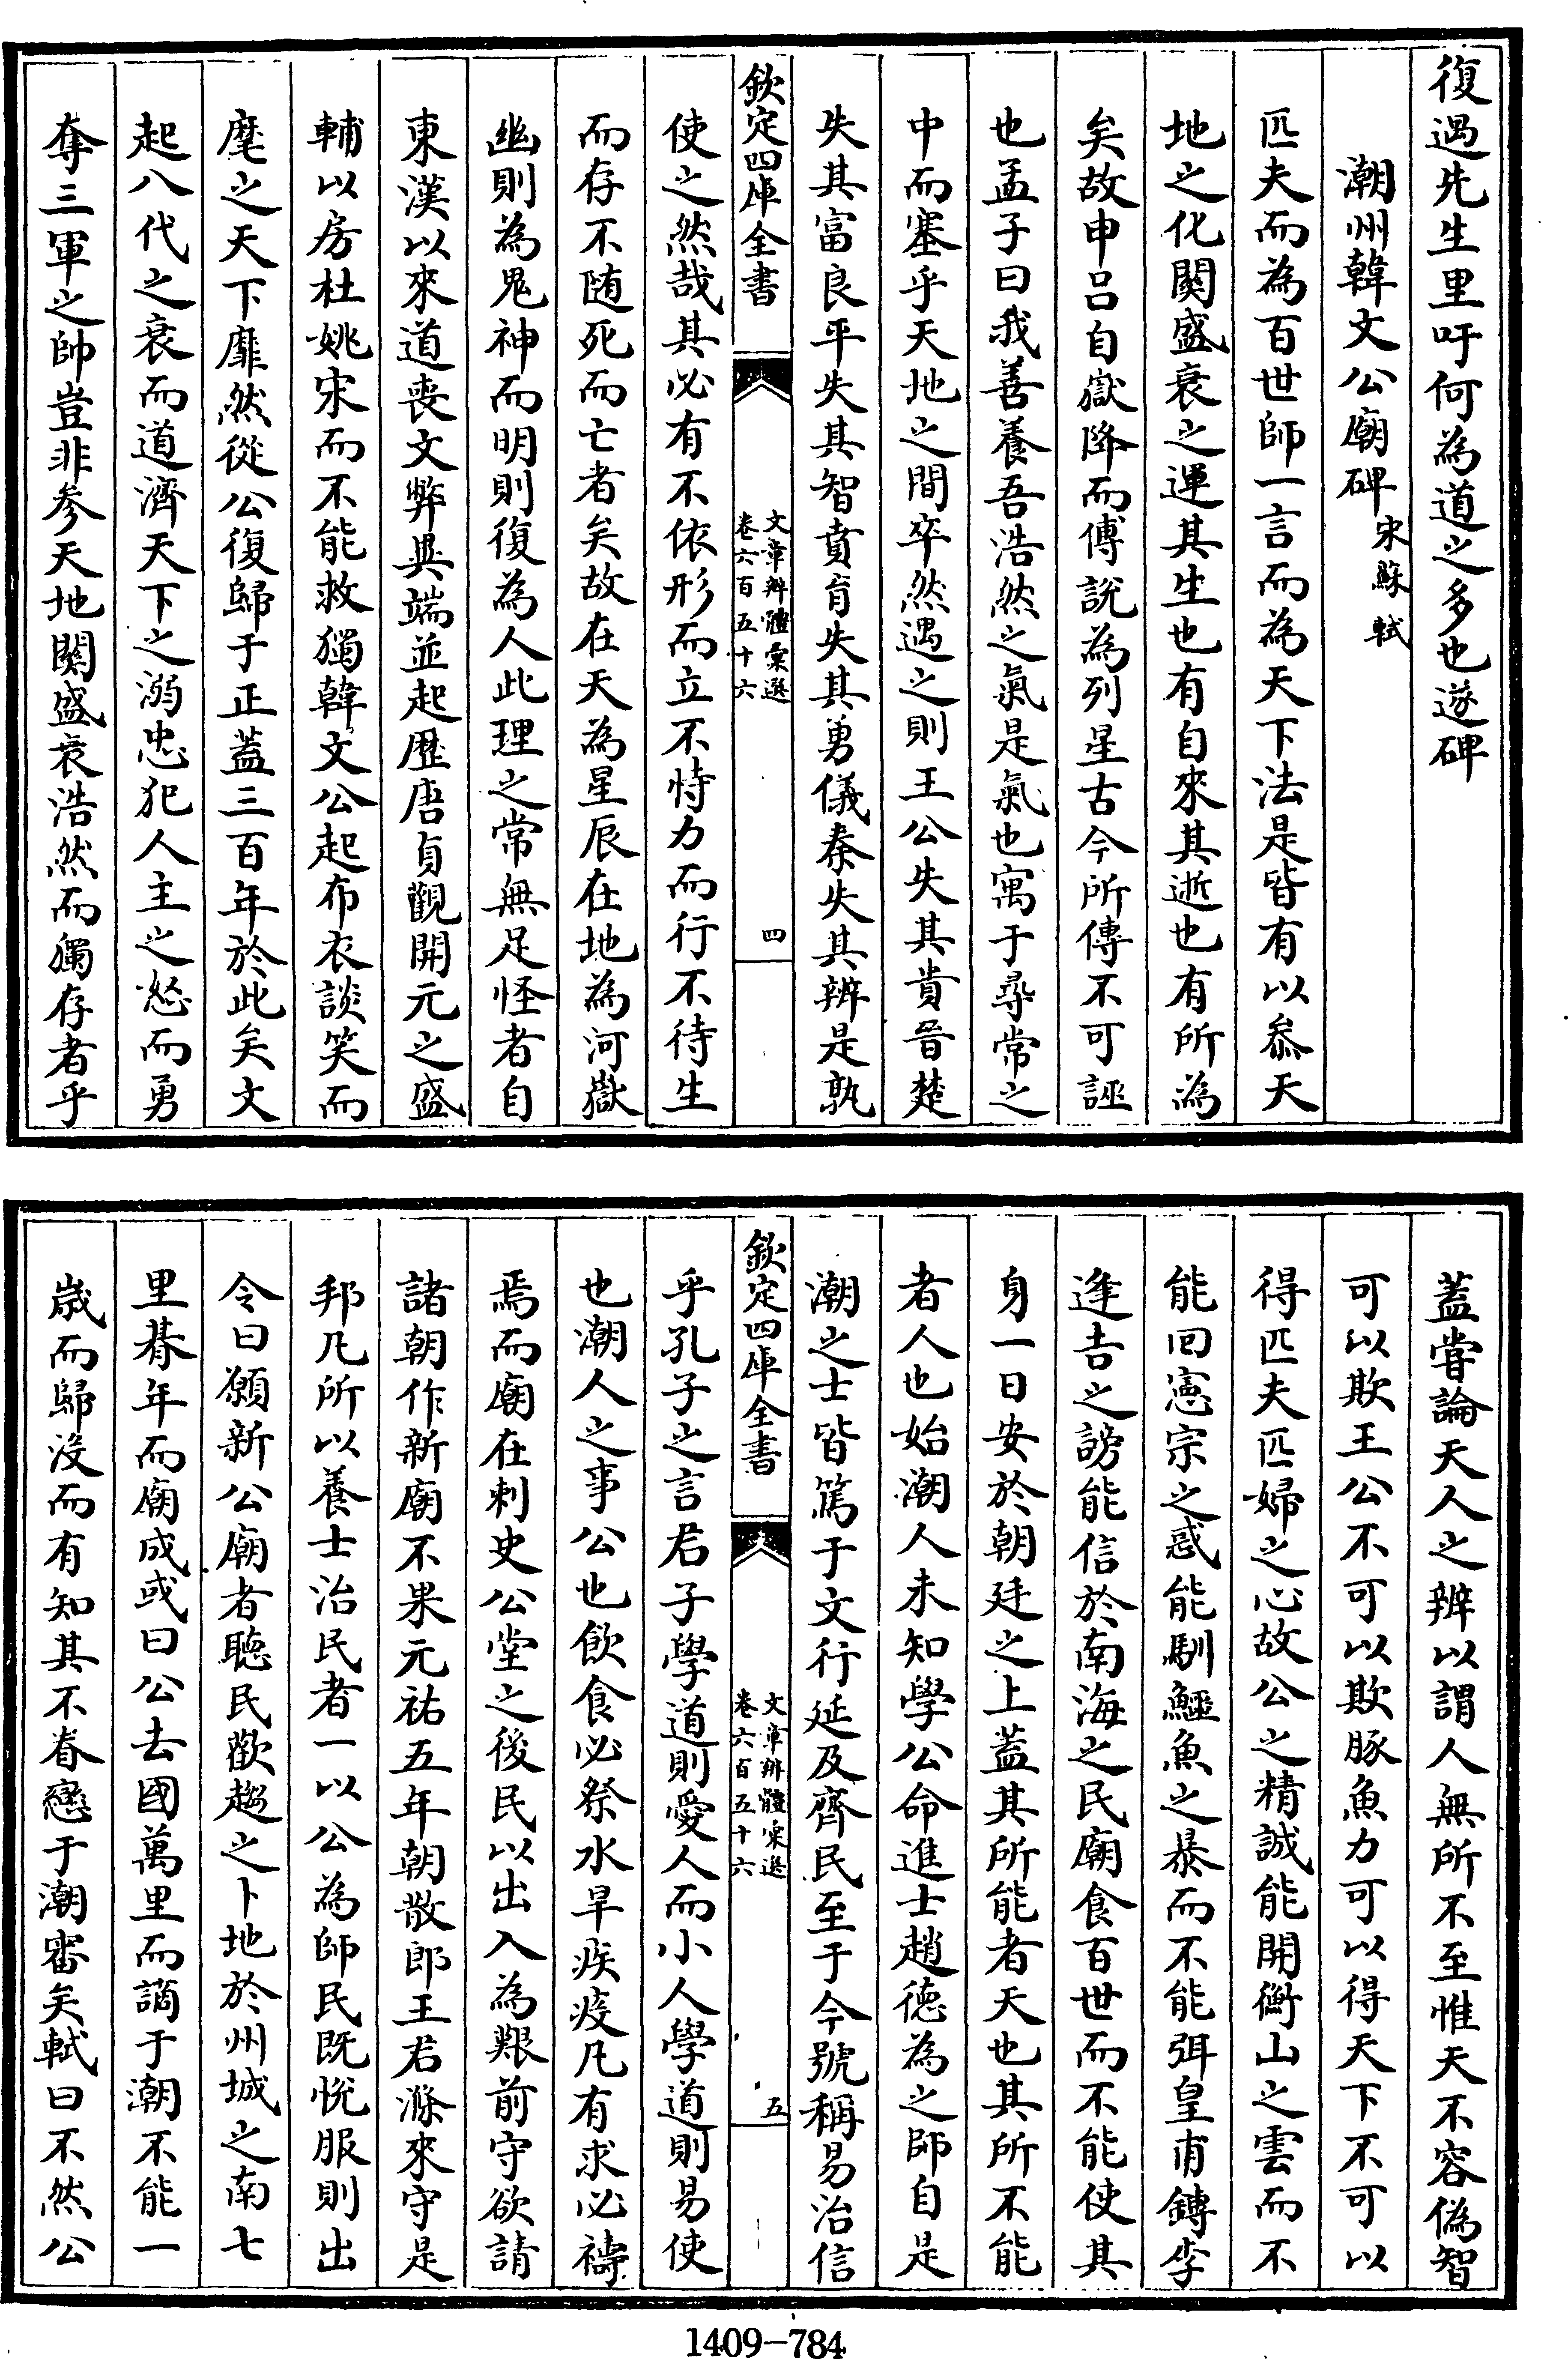 復遇先生里吁何為道之多也遂碑
潮州韓文公廟碑 宋蘇軾
匹夫而為百世師一言而為天下法是皆有以叅天
地之化關盛衰之運其生也有自來其逝也有所為
矣故申呂自嶽降而傅說為列星古今所傳不可誣
也孟子曰我善養吾浩然之氣是氣也寓于尋常之
中而塞乎天地之間卒然遇之則王公失其貴晉楚
失其富良平失其智賁育失其勇儀秦失其辨是孰
欽定四庫全書
文章辨體彙選
卷六百五十六
四
使之然哉其必有不依形而立不恃力而行不待生
而存不随死而亡者矣故在天為星辰在地為河嶽
幽則為鬼神而明則復為人此理之常無足怪者自
東漢以來道喪文弊異端並起歴唐貞觀開元之盛
輔以房杜姚宋而不能救獨韓文公起布衣談笑而
麾之天下靡然從公復歸于正蓋三百年於此矣文
起八代之衰而道濟天下之溺忠犯人主之怒而勇
奪三軍之帥豈非参天地關盛衰浩然而獨存者乎
蓋嘗論天人之辨以謂人無所不至惟天不容偽智
可以欺王公不可以欺豚魚力可以得天下不可以
得匹夫匹婦之心故公之精誠能開衡山之雲而不
能回憲宗之惑能馴鱷魚之暴而不能弭皇甫鎛李
逢吉之謗能信於南海之民廟食百世而不能使其
身一日安於朝廷之上蓋其所能者天也其所不能
者人也始潮人未知學公命進士趙德為之師自是
潮之士皆篤于文行延及齊民至于今號稱易治信
欽定四庫全書
文章辨體彙選
卷六百五十六
五
乎孔子之言君子學道則愛人而小人學道則易使
也潮人之事公也飲食必祭水旱疾疫凡有求必禱
焉而廟在刺史公堂之後民以出入為艱前守欲請
諸朝作新廟不果元祐五年朝散郎王君滌來守是
邦凡所以養士治民者一以公為師民既悅服則出
令曰願新公廟者聽民歡趨之卜地於州城之南七
里朞年而廟成或曰公去國萬里而謫于潮不能一
歲而歸沒而有知其不眷戀于潮審矣軾曰不然公
1409-784